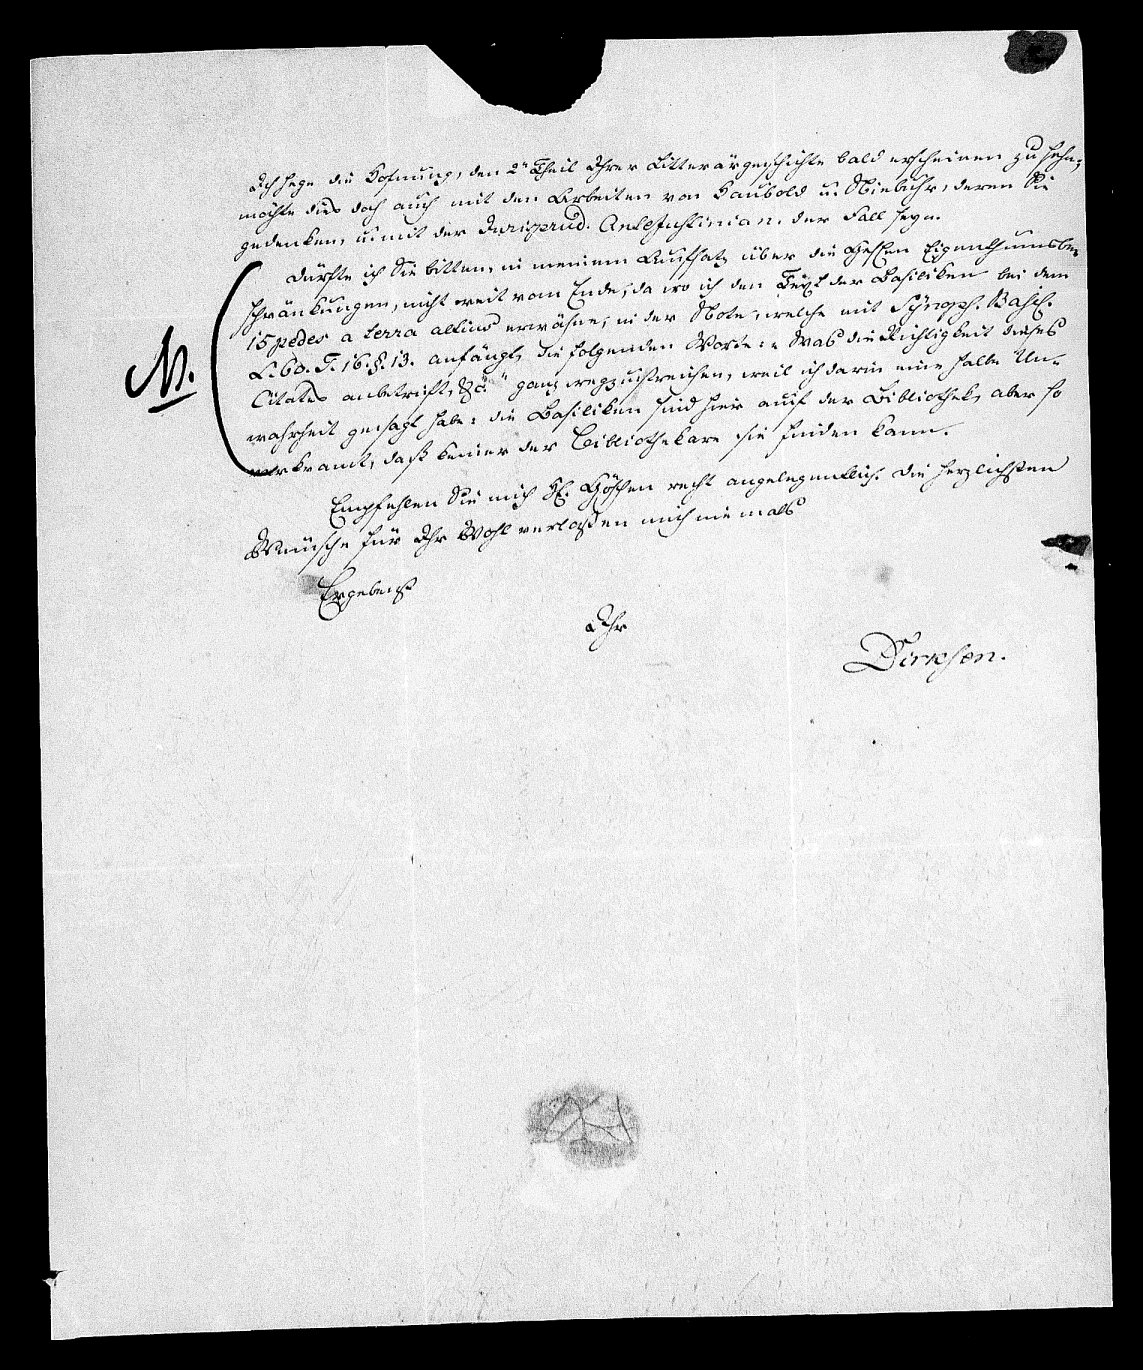 Ich hege die Hofnung, den 2n Theil Ihrer Litterärgeschichte bald erscheinen zu sehn;
möchte dies doch auch mit den Arbeiten von Haubold u. Niebuhr, deren Sie
gedenken, u. mit der Jurisprud. AnteJustinian. der Fall seyn.
Dürfte ich Sie bitten, in meinem Aufsatz über die Eigenthumsbe-
schränkungen, nicht weit vom Ende, da wo ich den Text der Basiliken bei dem
15 pedes a terra altius erwähne, in der Note, welche mit Synops. Basil.
L. 60. T. 16. §. 13. anfängt, die folgenden Worte: „Was die Richtigkeit dieses
Citates anbetrift, &c“ ganz wegzustreichen, weil ich darin eine halbe Un-
wahrheit gesagt habe: die Basiliken sind hier auf der Bibliothek, aber so
verkramt, daß keiner der Bibliothekare sie finden kann.
N.
Empfehlen Sie mich H. Göschen recht angelegentlich. Die herzlichsten
Wünsche für Ihr Wohl verlaßen mich niemals
Ergebenst
Ihr
Dirksen.